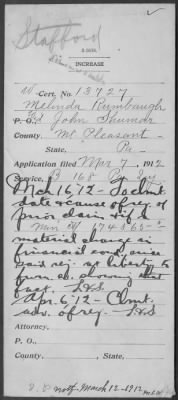 Stafford
INCREASE
W Cert. No. 13727
Melinda Rumbaugh
P. O., John Shumar
County, Mt Pleasant
State, Pa
Application filed Mar 7, 1912
Service, B 168 Pa Inf
Mch 16/12 - To clmt
date & cause of rej. of
prior claim
material change in
financial cond. since
said rej. at liberty to
furn. ev. showing that
fact.
Apr. 6, 12 - Clmt.
adv. of rej.
Attorney,
P. O.,
County, State,
notf March 12-1912